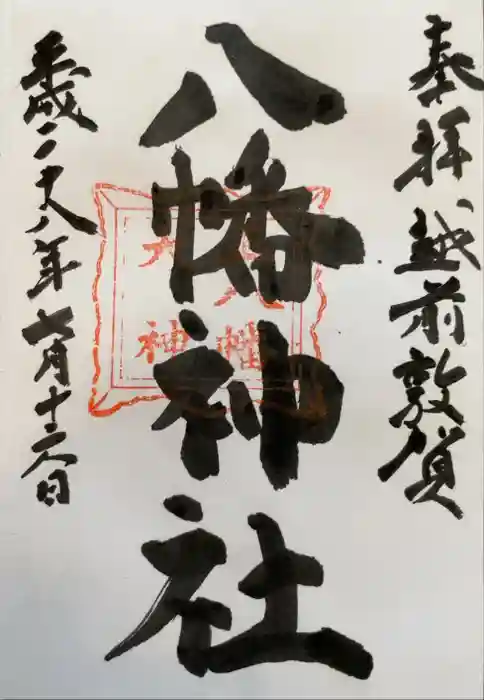 奉拝 越前敦賀
八幡神社
平成二十八年七月十六日